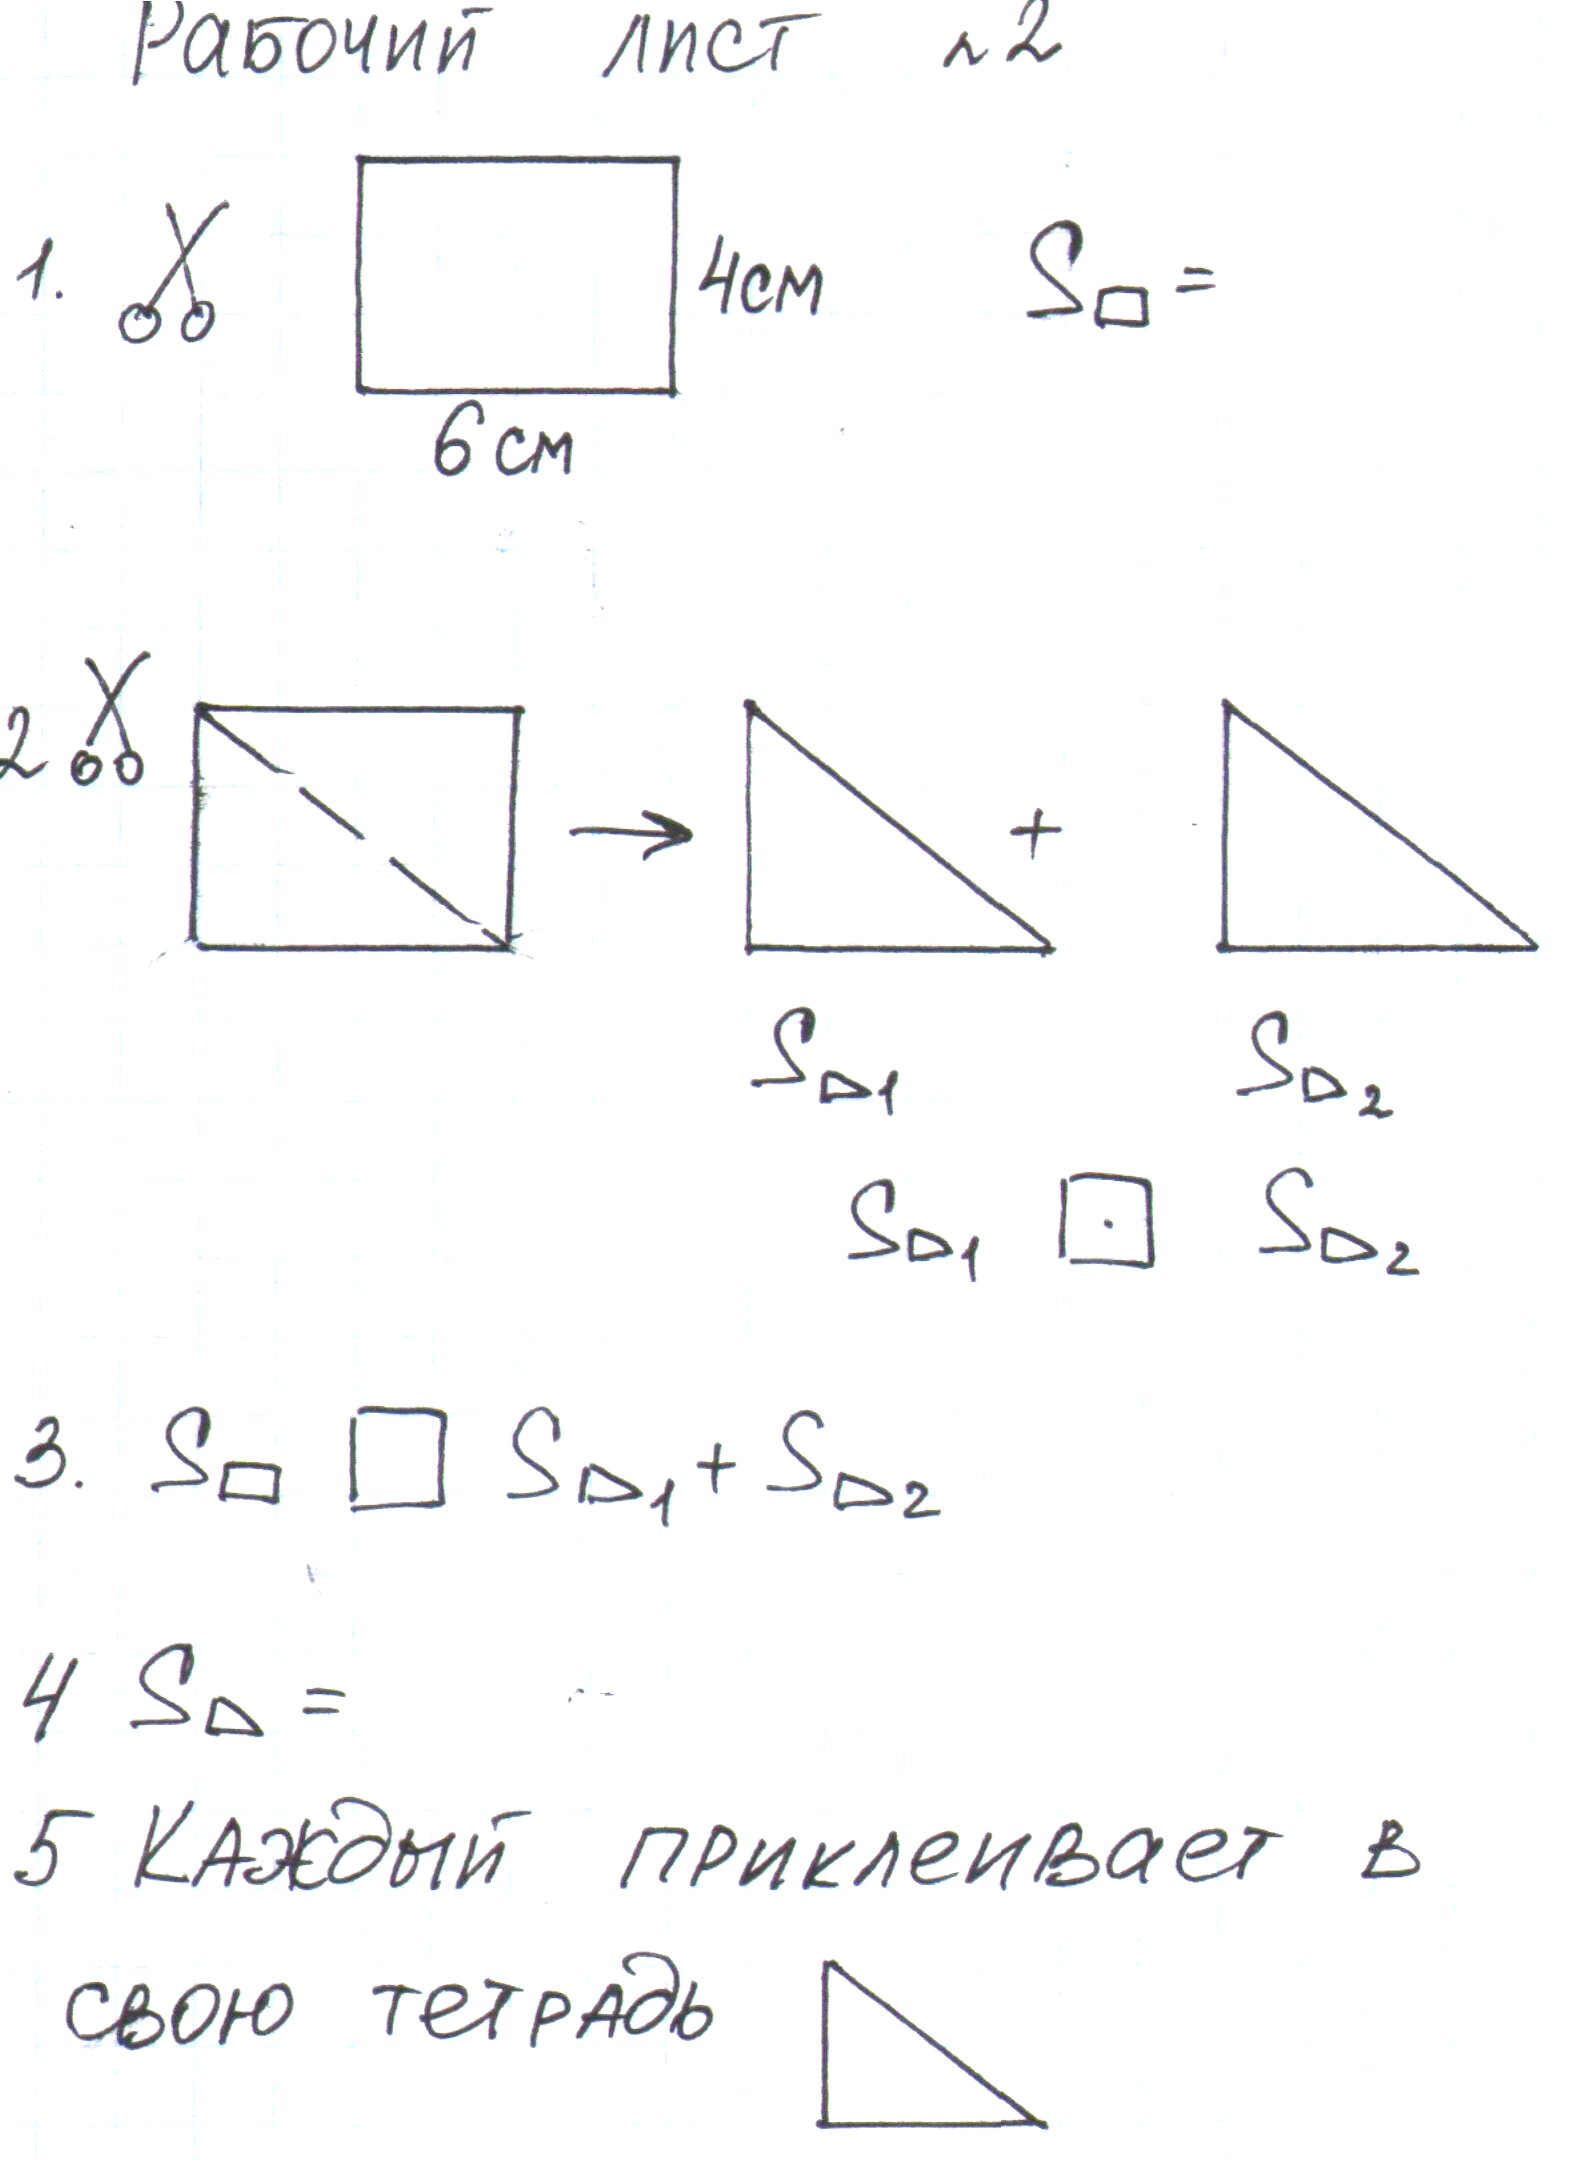 Рабочий лист №2
1. 4см S▭=
6см
2
+
S△1 S△2
S△1 □ S△2
3. S▭ □ S△1+S△2
4 S△=
5 Каждый приклеивает в
свою тетрадь